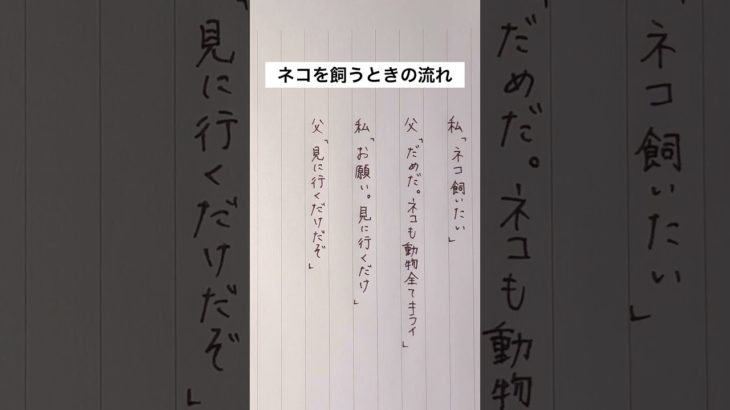 ネコを飼うときの流れ
私「ネコ飼いたい」
父「だめだ。ネコも動物全てキライ」
私「お願い。見に行くだけ」
父「見に行くだけだぞ」
ネコ飼いたい」
「だめだ。ネコも動物
「見に行くだけだぞ」